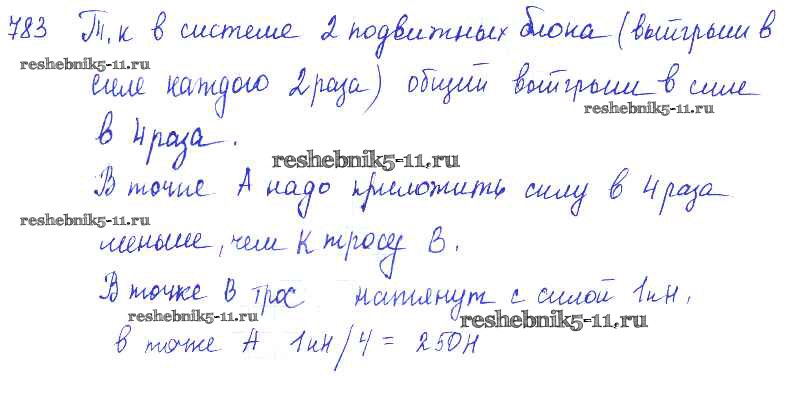 783 Т.к в системе 2 подвижных блока (выйгрыш в
reshebnik5-11.ru
силе каждого 2 раза) общий выйгрыш в силе
reshebnik5-11.ru
в 4 раза.
reshebnik5-11.ru
В точке А надо приложить силу в 4 раза
reshebnik5-11.ru
меньше, чем к тросу В.
В точке В трос натянут с силой 1кН,
reshebnik5-11.ru
reshebnik5-11.ru
в точке А 1кН/4 = 250Н